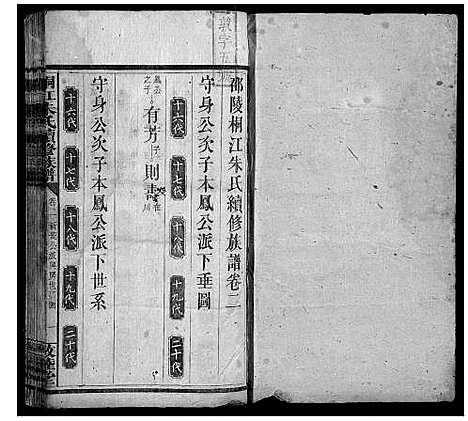 邵陵桐江朱氏續修族譜卷二
守身公次子本鳳公派下垂圖
十六代 十七代 十八代 十九代 二十代
鳳公之子 有芳 子 則
守身公次子本鳳公派下世系
十六代 十七代 十八代 十九代 二十代
桐江朱氏續修族譜
卷二